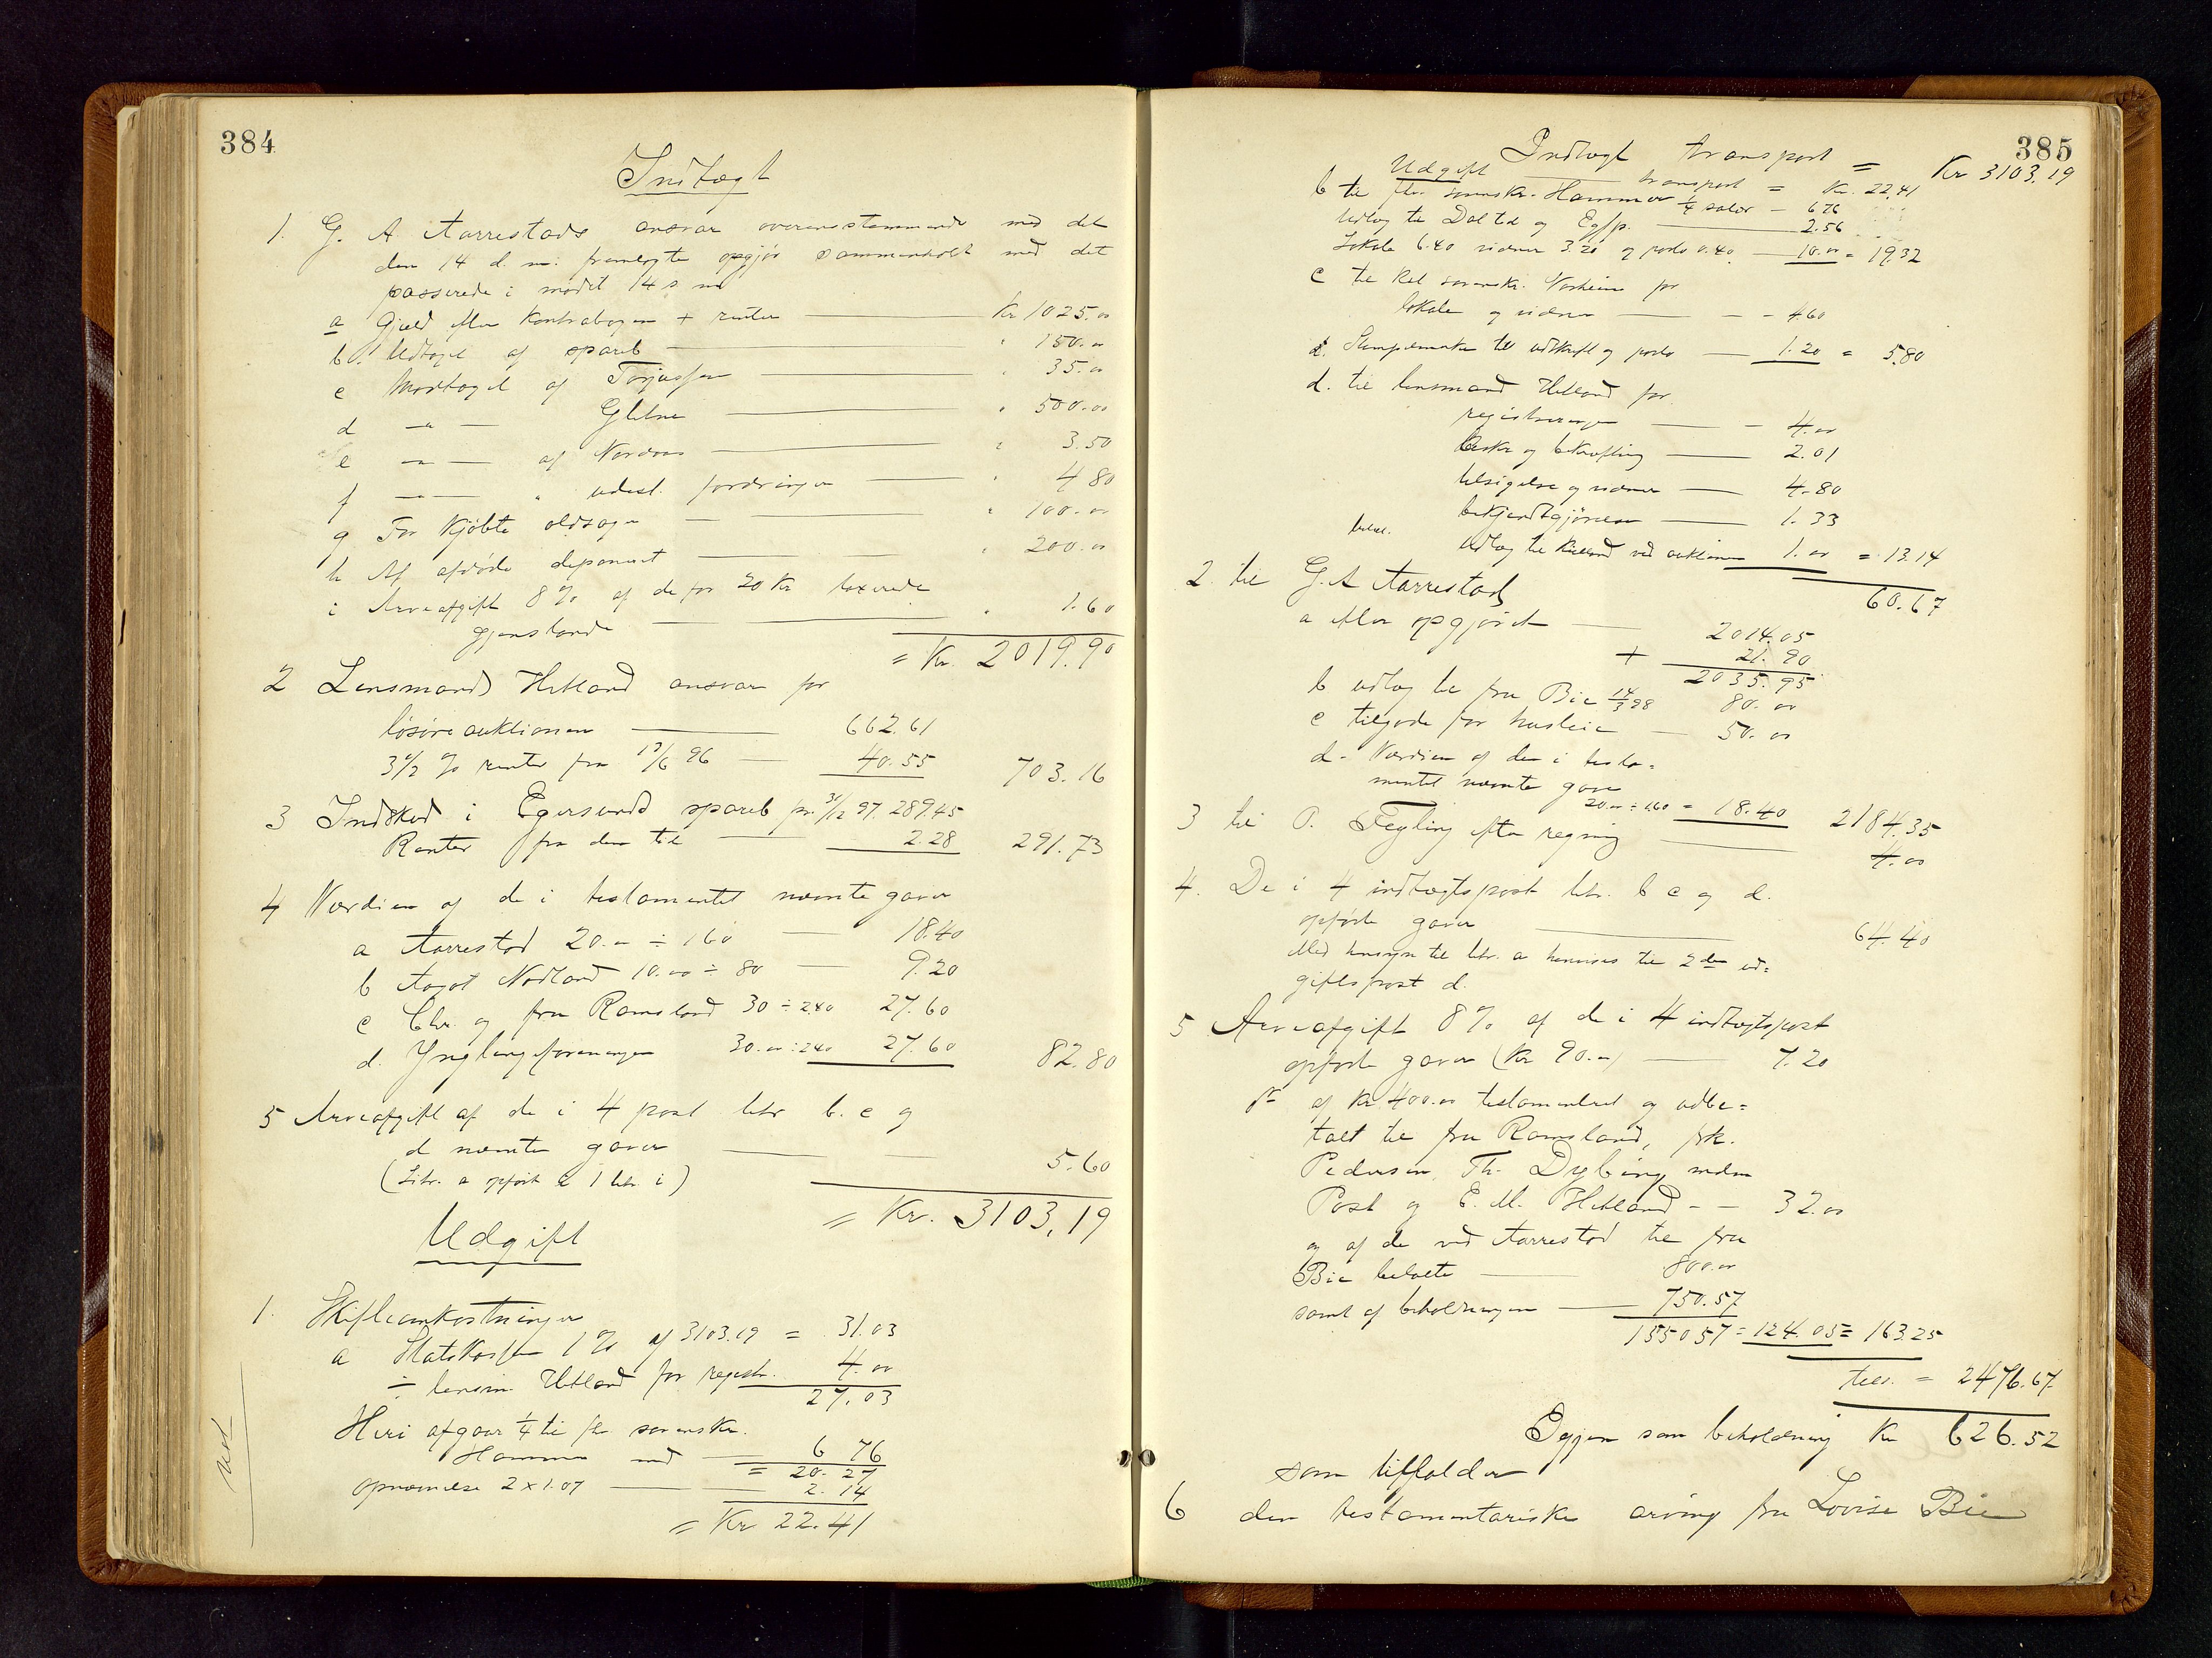 384
Indtægt
1. G. A Aarrestads ansvar overensstemmende med det
den 14 d. m. fremlagte opgjør sammenholdt med det
passerede i mødet 14 s m
a Gjæld efter Kontrabogen + renter Kr 1025.00
b. Udtaget af spareb " 150.00
c Modtaget af Torjussen " 35.00
d — " — Glitne " 500.00
e — " — af Nordaas " 3.50
f — " — " udest. fordringer " 4 80
g For Kjøbte oldsager " 100.00
h Af afdøde deponeret " 200.00
i Arveafgift 8 % af de for 20 Kr taxerede
gjenstande " 1.60
= Kr. 2019.90
2 Lensmand Hetland ansvar for
løsøreauktionen 662.61
3 1/2 % renter fra 17/6 96 40.55 703.16
3 Indskud i Egersunds spareb pr. 31/12 97. 289.45
Renter fra den tid 2.28 291.73
4 Værdien af de i testamentet nævnte gaver
a Aarrestad 20.00 ÷ 160 18.40
b Aagot Nodland 10.00 ÷ 80 9.20
c Chr. og fru Ramsland 30 ÷ 240 27.60
d. Ynglingeforeningen 30.00 ÷ 240 27.60 82.80
5 Arveafgift af de i 4 post litr b. c og
d nævnte gaver 5.60
(Litr. a opført i 1 litr i)
= Kr. 3103,19
Udgift
1. Skifteomkostninger
a Statskassen 1 % af 3103.19 = 31.03
÷ lensm. Hetland for registr. 4.00
27.03
Heri afgaar 1/4 til fhv sorenskr.
Hammer med 6 76
= 20. 27
opnævnelse 2 x 1.07 2. 14
= Kr 22.41
385
Indtægt transport = Kr 3103.19
Udgift transport = Kr. 22.41
b til fhv. sorenskr. Hammer 1/4 salær — 6.76
Udlæg til Dal td og Egsp. 2.56
Lokale 6.40 vidner 3.20 og porto 0.40 10.00 = 19.32
c til kst sorenskr. Varheim for
lokale og vidner 4.60
Stempelmærke til udskrift og porto 1.20 = 5.80
d. til lensmand Hetland for
registreringen 4.00
beskr og bekræfting 2.01
tilsigelse og vidner 4.80
bekjendtgjørelse 1. 33
Udlæg til Kielland ved auktionen 1.00 = 13.14
60.67
2. til G. A Aarrestad
a efter opgjøret 2014.05
+ 21.90
2035.95
b udlæg til fru Bie 14/3 98 80.00
c tilgode for husleie 50.00
d. Værdien af den i testa=
mentet nævnte gave
20.00 ÷ 1.60 = 18.40 2184.35
3 til P. Tegling efter regning 4.00
4. De i 4 indtægtspost litr. b c og d.
opførte gaver 64.40
Med hensyn til litr. a henvises til 2den ud=
giftspost d.
5 Arveafgift 8 % af de i 4 indtægtspost
opførte gaver (Kr 90.00) 7.20
af Kr 400.00 testamenteret og udbe=
talt til fru Ramsland, frk.
Pedersen, Th. Dybing
Post og E. M. Hetland — — 32.00
og af de ved Aarrestad til fru
Bie betalte 800.00
samt af beholdningen 750.57
1550 57 = 124.05 = 163.25
tils. = 2476.67
Igjen som beholdning Kr 626.52
som tilfalder
6 den testamentariske arving fru Lovise Bie